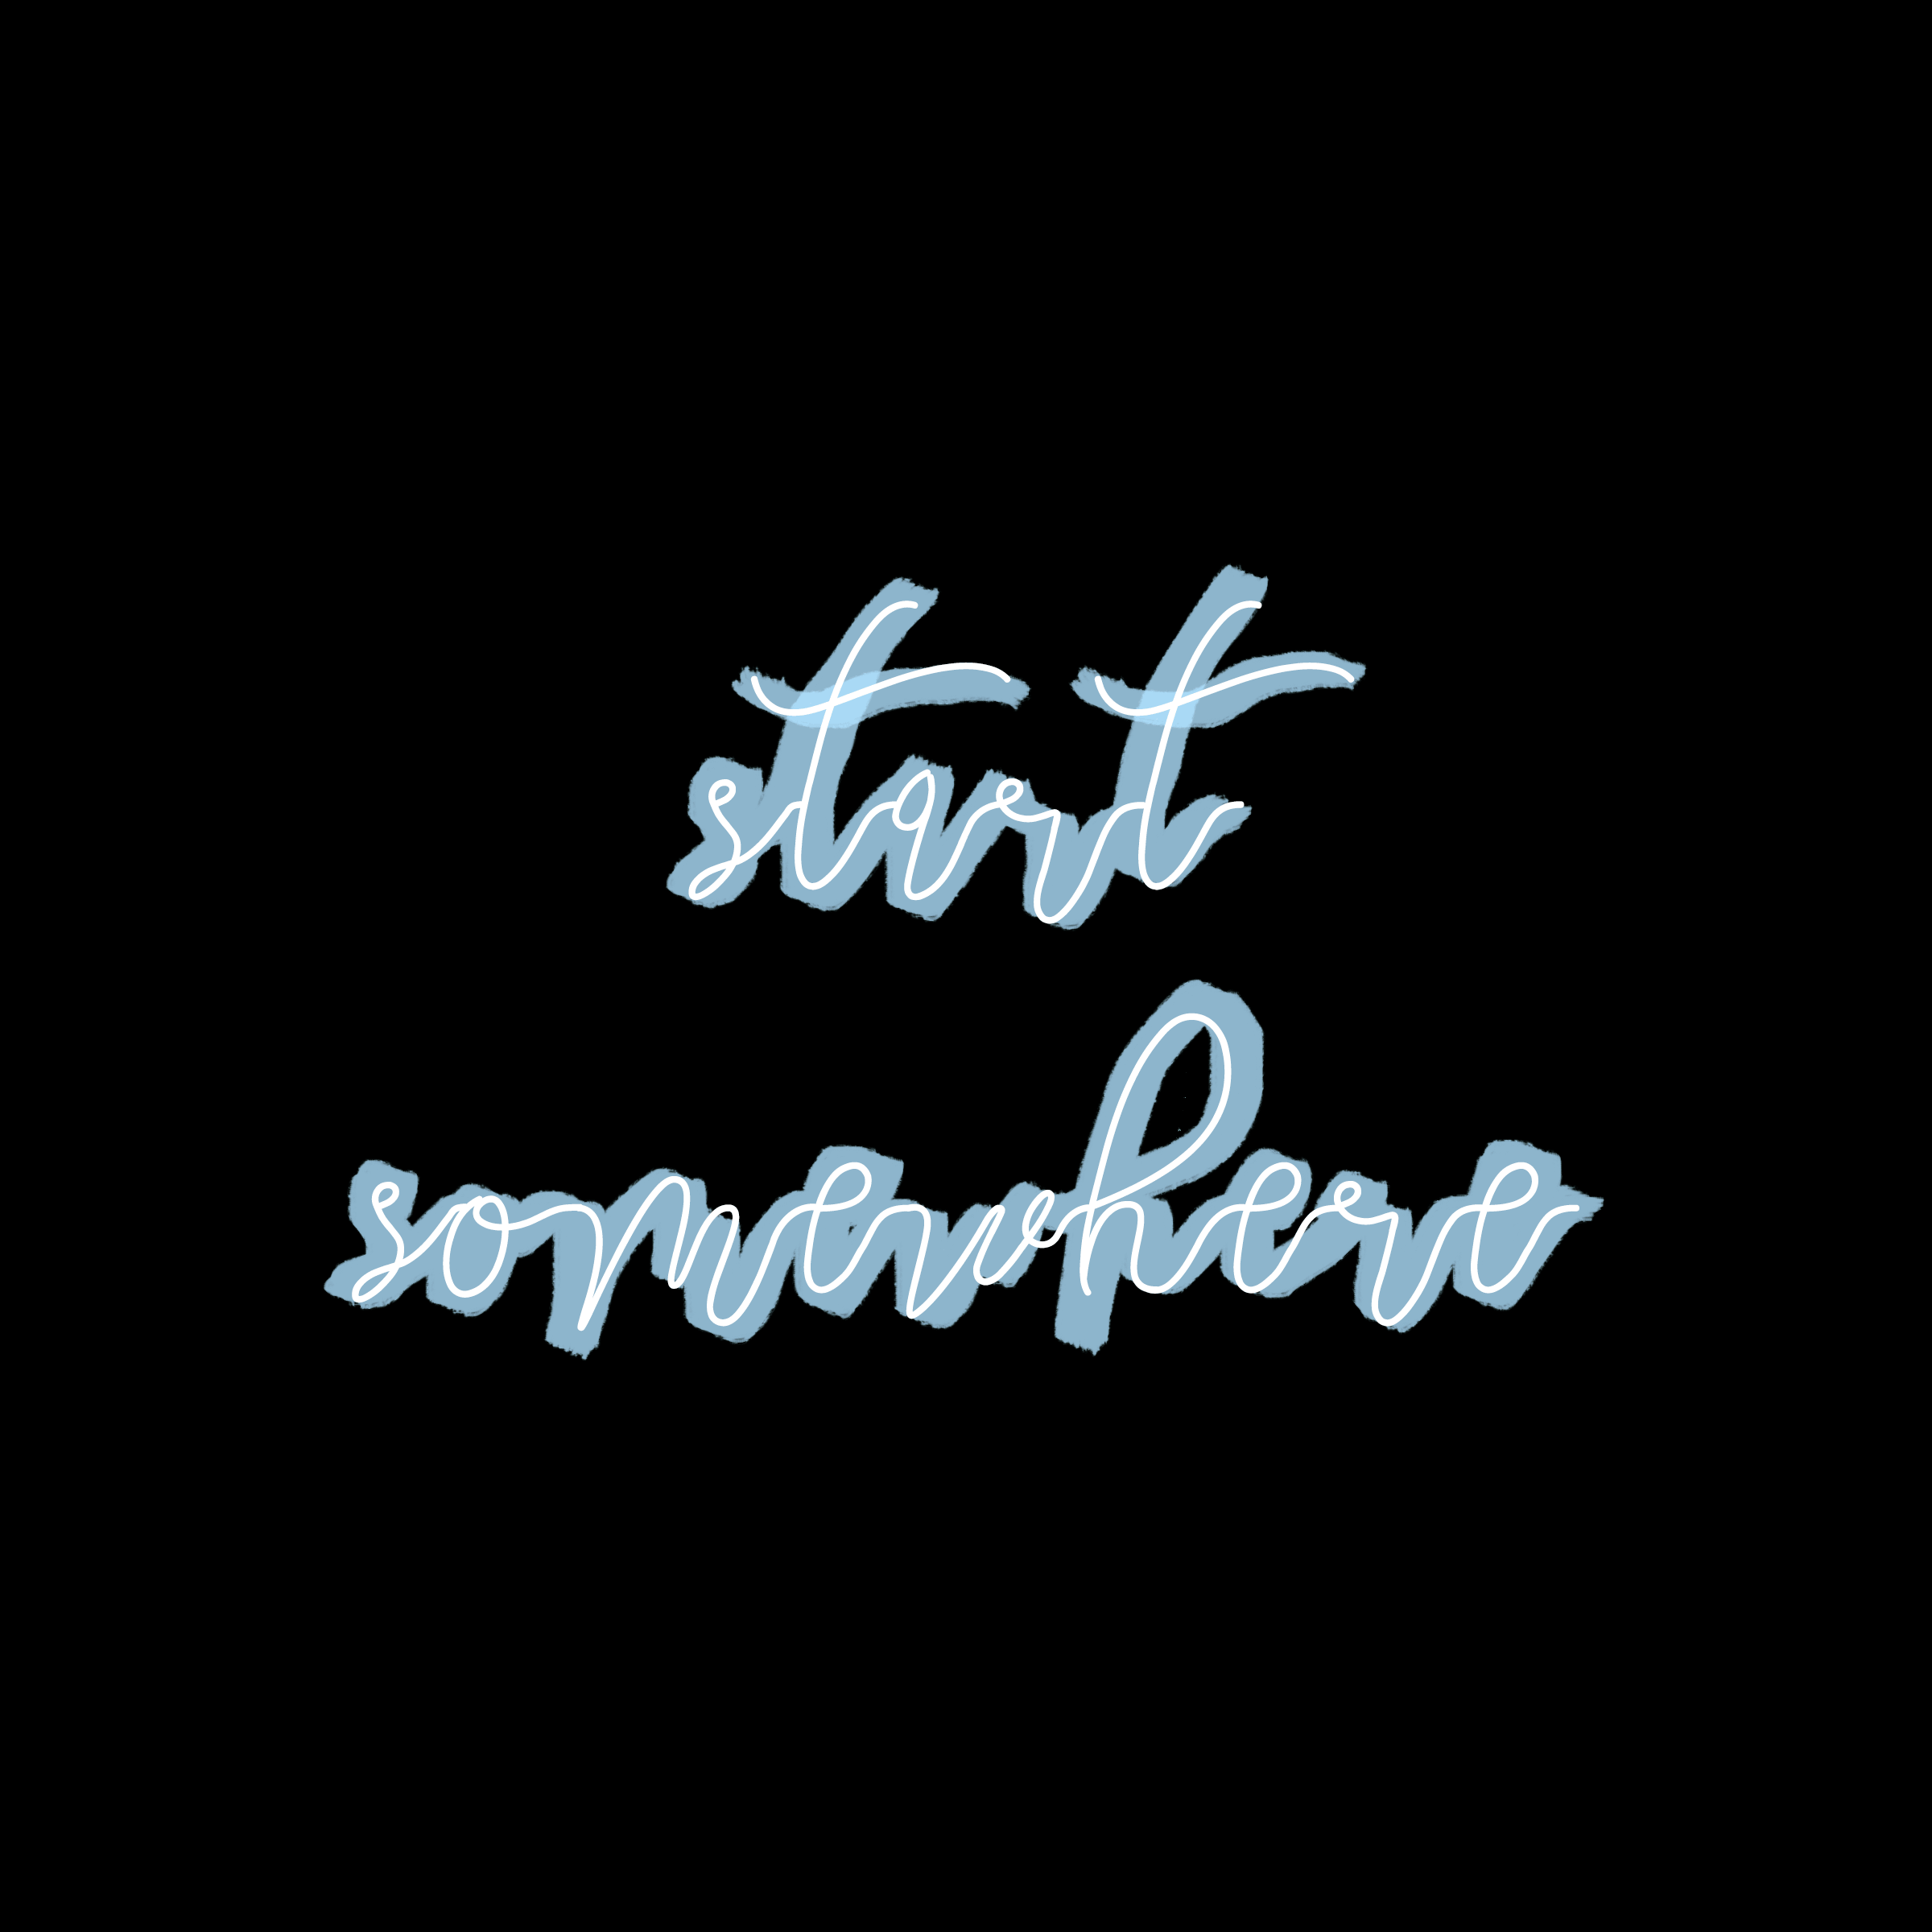 start
somewhere